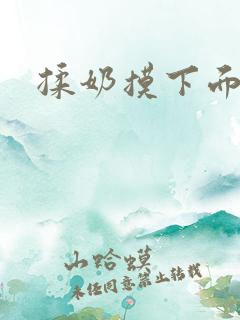 揉奶摸下而
山蛤蟆
未经同意禁止转载